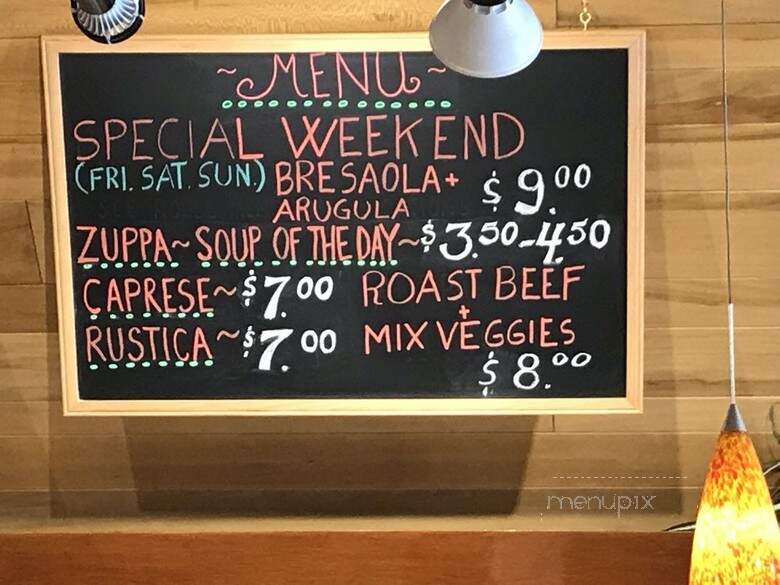 ~MENU~
SPECIAL WEEKEND
(FRI. SAT. SUN.) BRESAOLA+ $9.00
ARUGULA
ZUPPA~SOUP OF THE DAY~$3.50-4.50
CAPRESE~$7.00 ROAST BEEF
+
RUSTICA~$7.00 MIX VEGGIES
$8.00
menupix